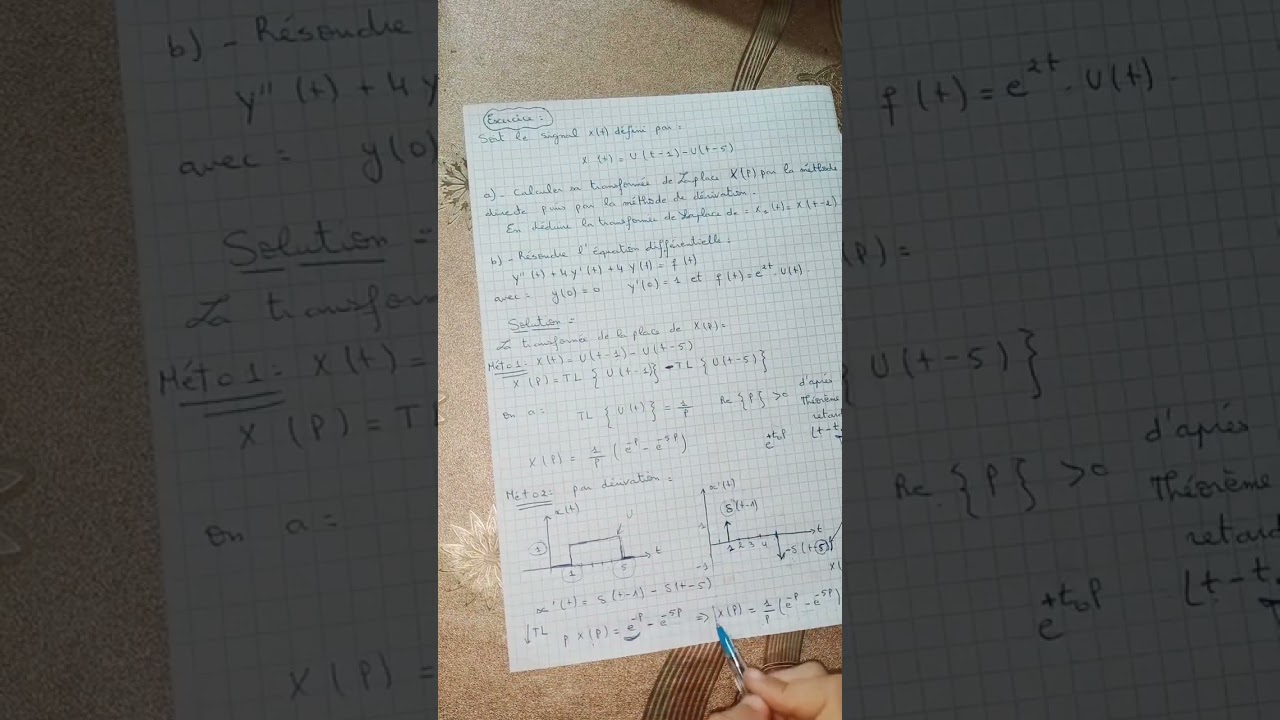 Exercice :
Soit le signal x(t) défini par :
x(t) = U(t-1) - U(t-5)
a) - Calculer sa transformée de Laplace X(P) par la méthode
directe puis par la méthode de dérivation.
En déduire la transformée de Laplace de = x₂(t) = x(t-2)
b) - Résoudre l'équation différentielle :
y''(t) + 4y'(t) + 4y(t) = f(t)
avec = y(0) = 0 y'(0) = 1 et f(t) = e^{2t}.U(t).
Solution =
La transformée de la place de X(P) =
Mét01: x(t) = U(t-1) - U(t-5)
X(P) = TL { U(t-1)} - TL { U(t-5)}
on a = TL { U(t)} = 1/P Re {P} >0 d'après
Théorème
retard
X(P) = 1/P (e^{-P} - e^{-5P})
e^{+t₀P}
Mét02: par dérivation =
x(t)
U
1
1
5
t
x'(t)
δ(t-1)
1
1 2 3 4
t
-δ(t-5)
-1
x'(t) = δ(t-1) - δ(t-5)
↓TL P X(P) = e^{-P} - e^{-5P} => X(P) = 1/P (e^{-P} - e^{-5P})
b) - Résoudre
y''(t) + 4y
avec = y(0)
Solution =
La transform
Mét01: x(t) =
X(P) = TL
on a =
X(P) =
f(t) = e^{2t}.U(t).
(P) =
U(t-5)}
Re {P} >0
d'après
Théorème
retard
e^{+t₀P}